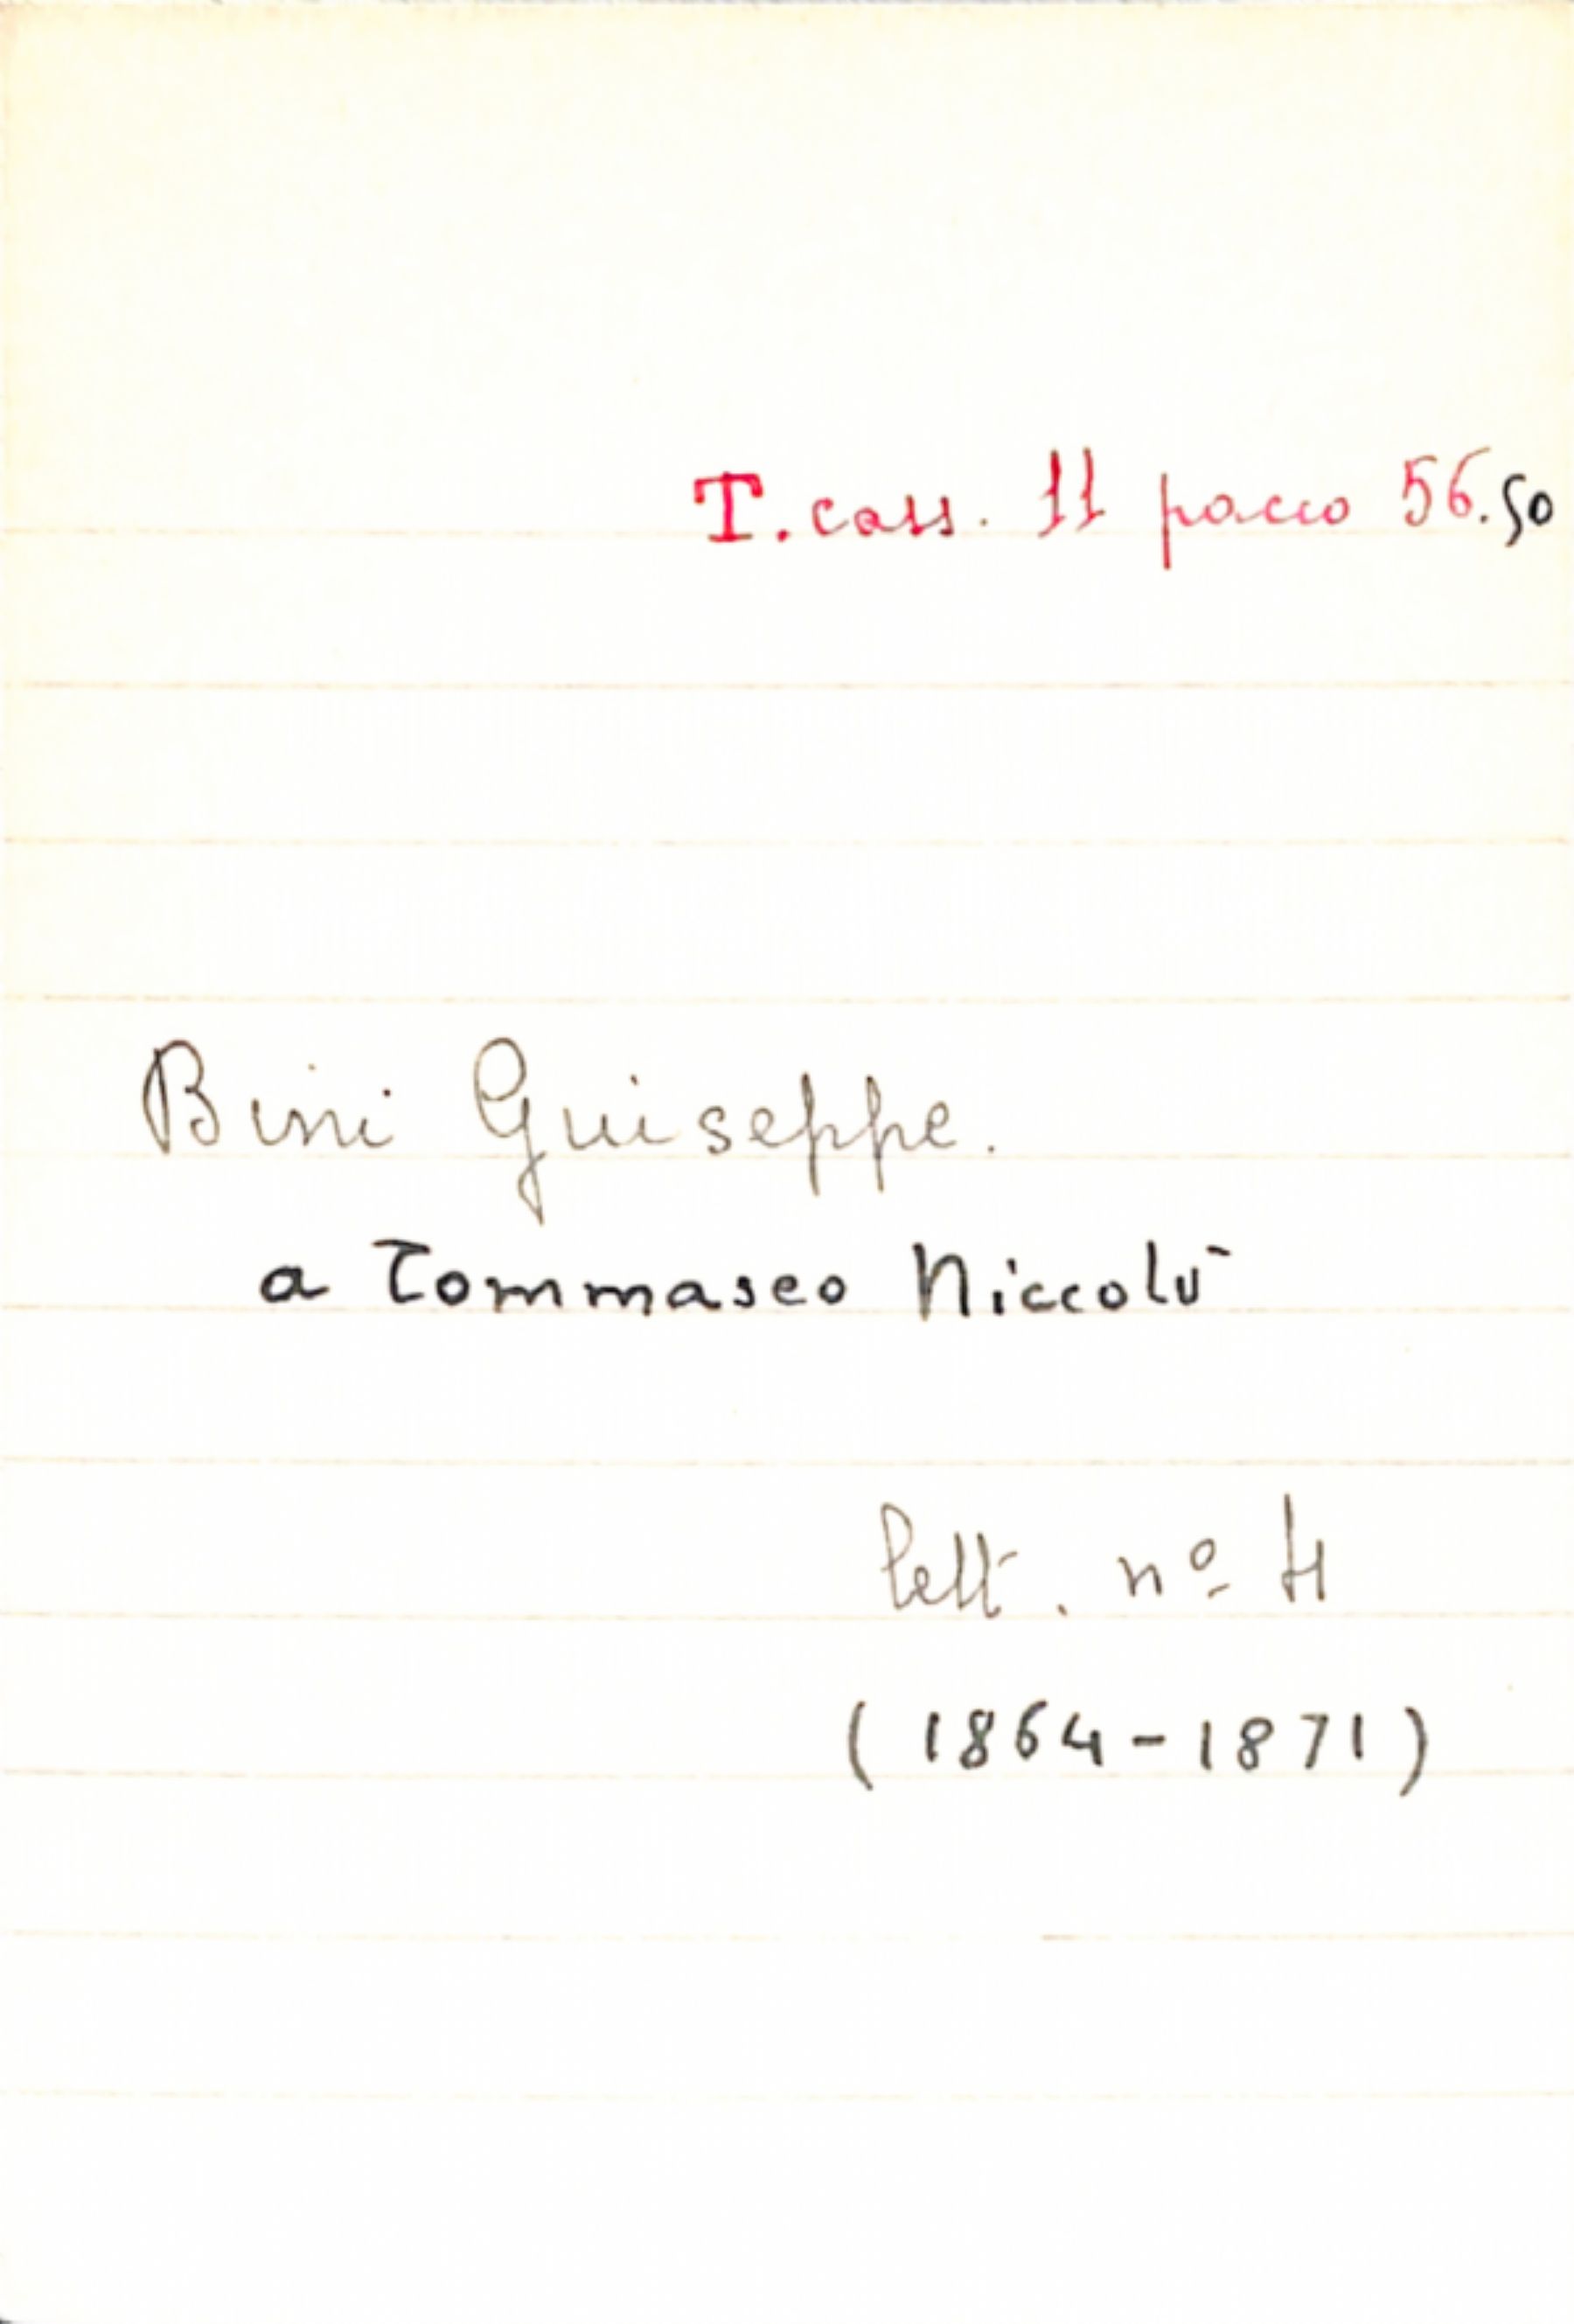 T. cass. 11 pacco 56.50
Bini Giuseppe.
a Tommaseo Niccolò
lett. nº 4
(1864-1871)